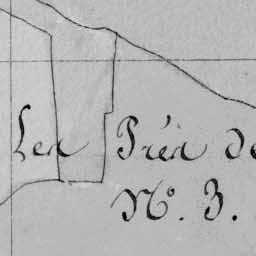 Les Prés de
N.º 3.